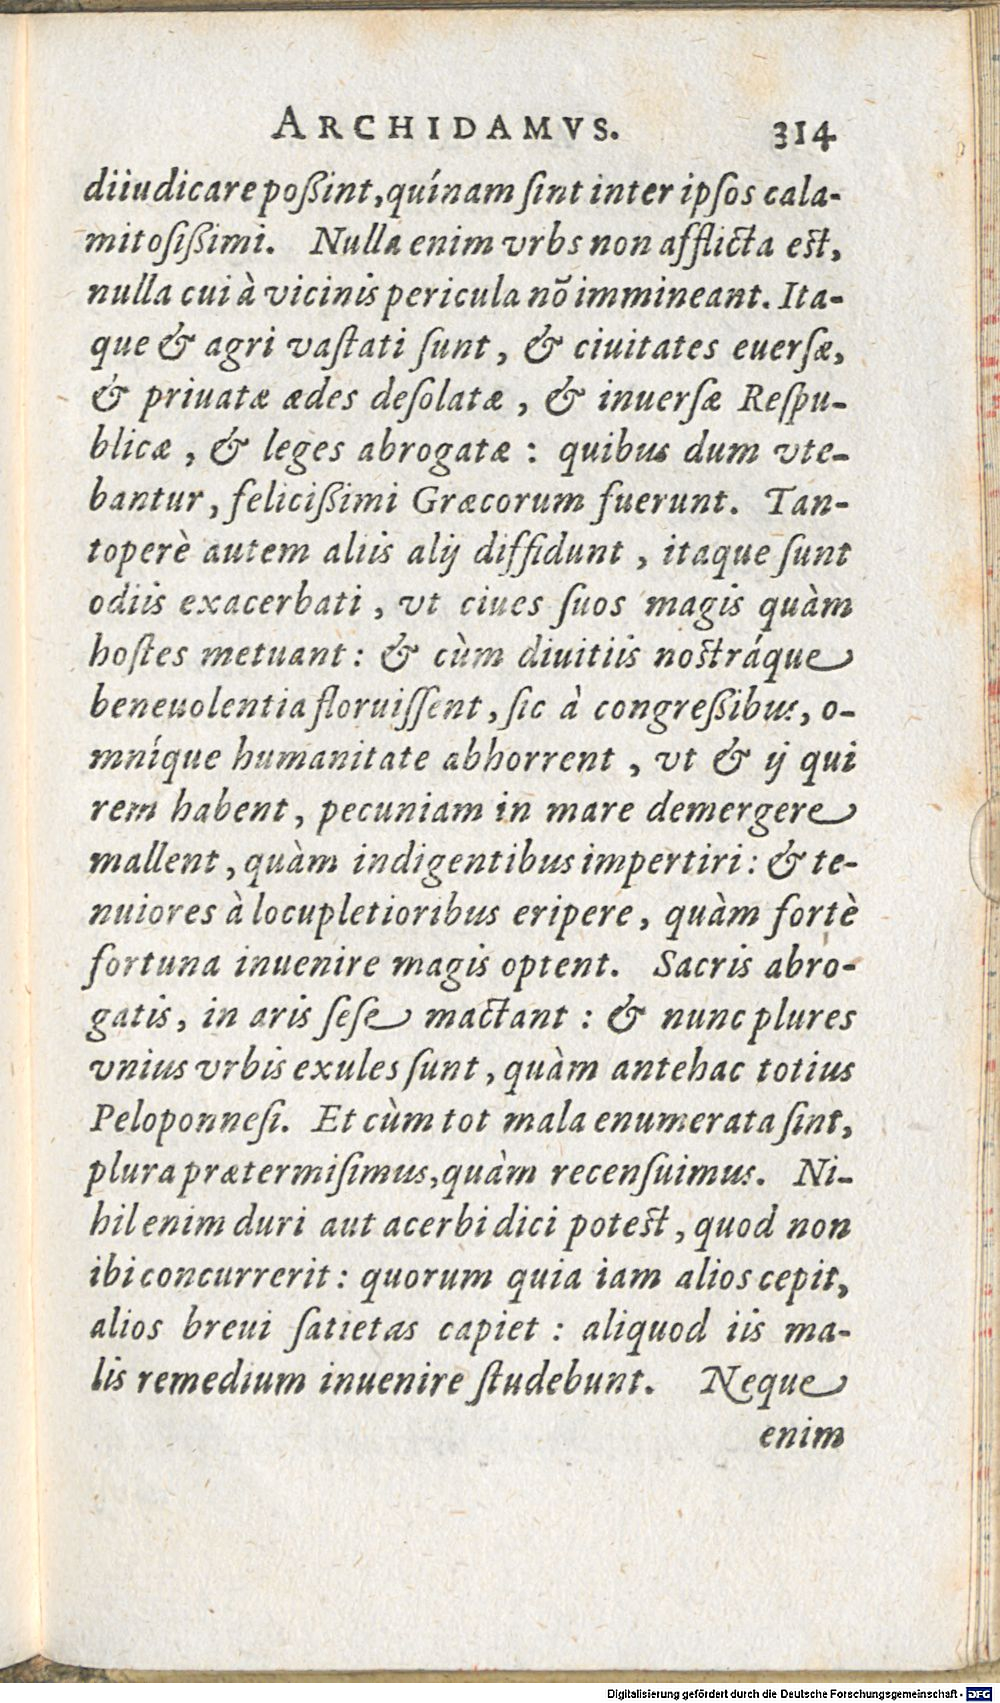 ARCHIDAMVS. 314
diiudicare poßint, quínam ſint inter ipſos cala-
mitoſißimi. Nulla enim vrbs non afflicta est,
nulla cui à vicinis pericula nõ immineant. Ita-
que & agri vaſtati ſunt, & ciuitates euerſæ,
& priuatæ ædes deſolatæ, & inuerſæ Reſpu-
blicæ, & leges abrogatæ: quibus dum vte-
bantur, felicißimi Græcorum fuerunt. Tan-
toperè autem aliis alij diffidunt, itaque ſunt
odiis exacerbati, vt ciues ſuos magis quàm
hoſtes metuant: & cùm diuitiis nostráque
beneuolentia floruiſſent, ſic à congreßibus, o-
mníque humanitate abhorrent, vt & ij qui
rem habent, pecuniam in mare demergere
mallent, quàm indigentibus impertiri: & te-
nuiores à locupletioribus eripere, quàm fortè
fortuna inuenire magis optent. Sacris abro-
gatis, in aris ſeſe mactant: & nunc plures
vnius vrbis exules ſunt, quàm antehac totius
Peloponneſi. Et cùm tot mala enumerata ſint,
plura prætermiſimus, quàm recenſuimus. Ni-
hil enim duri aut acerbi dici potest, quod non
ibi concurrerit: quorum quia iam alios cepit,
alios breui ſatietas capiet: aliquod iis ma-
lis remedium inuenire ſtudebunt. Neque
enim
Digitalisierung gefördert durch die Deutsche Forschungsgemeinschaft - DFG